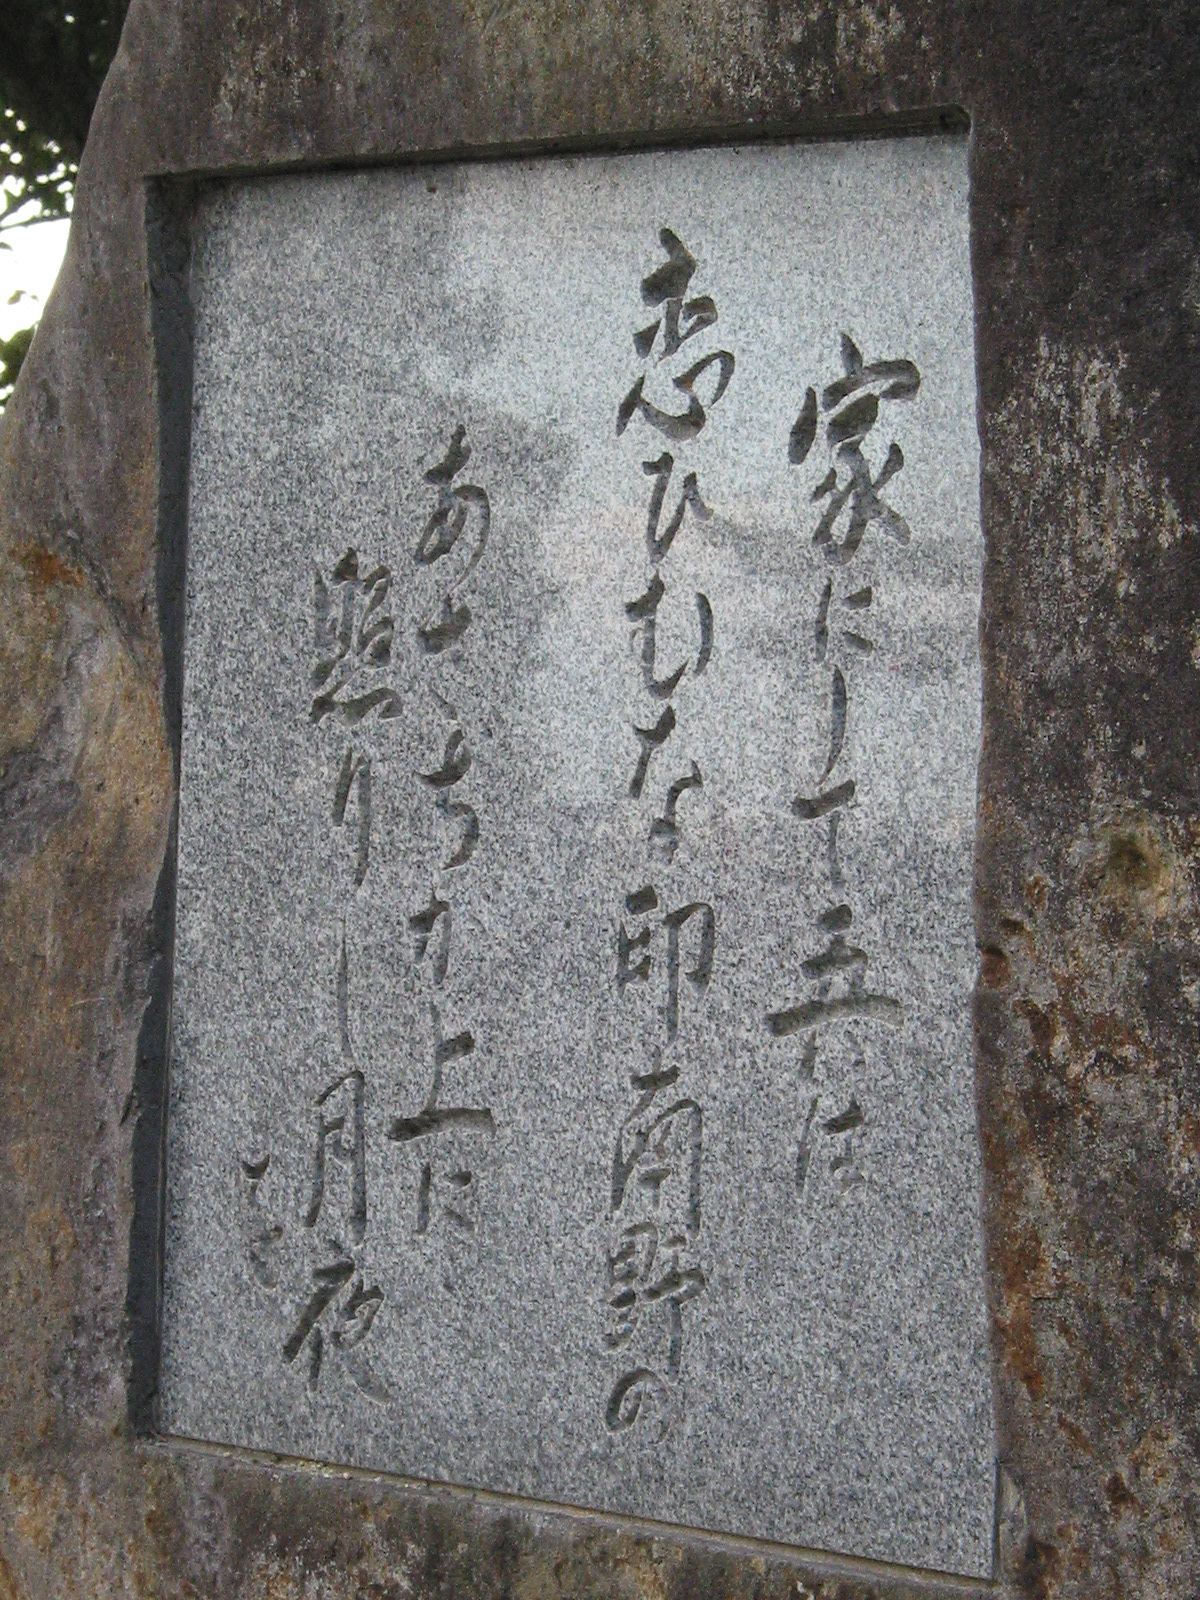 家にして吾は
恋ひむな印南野の
あさちか上に
照りし月夜
を